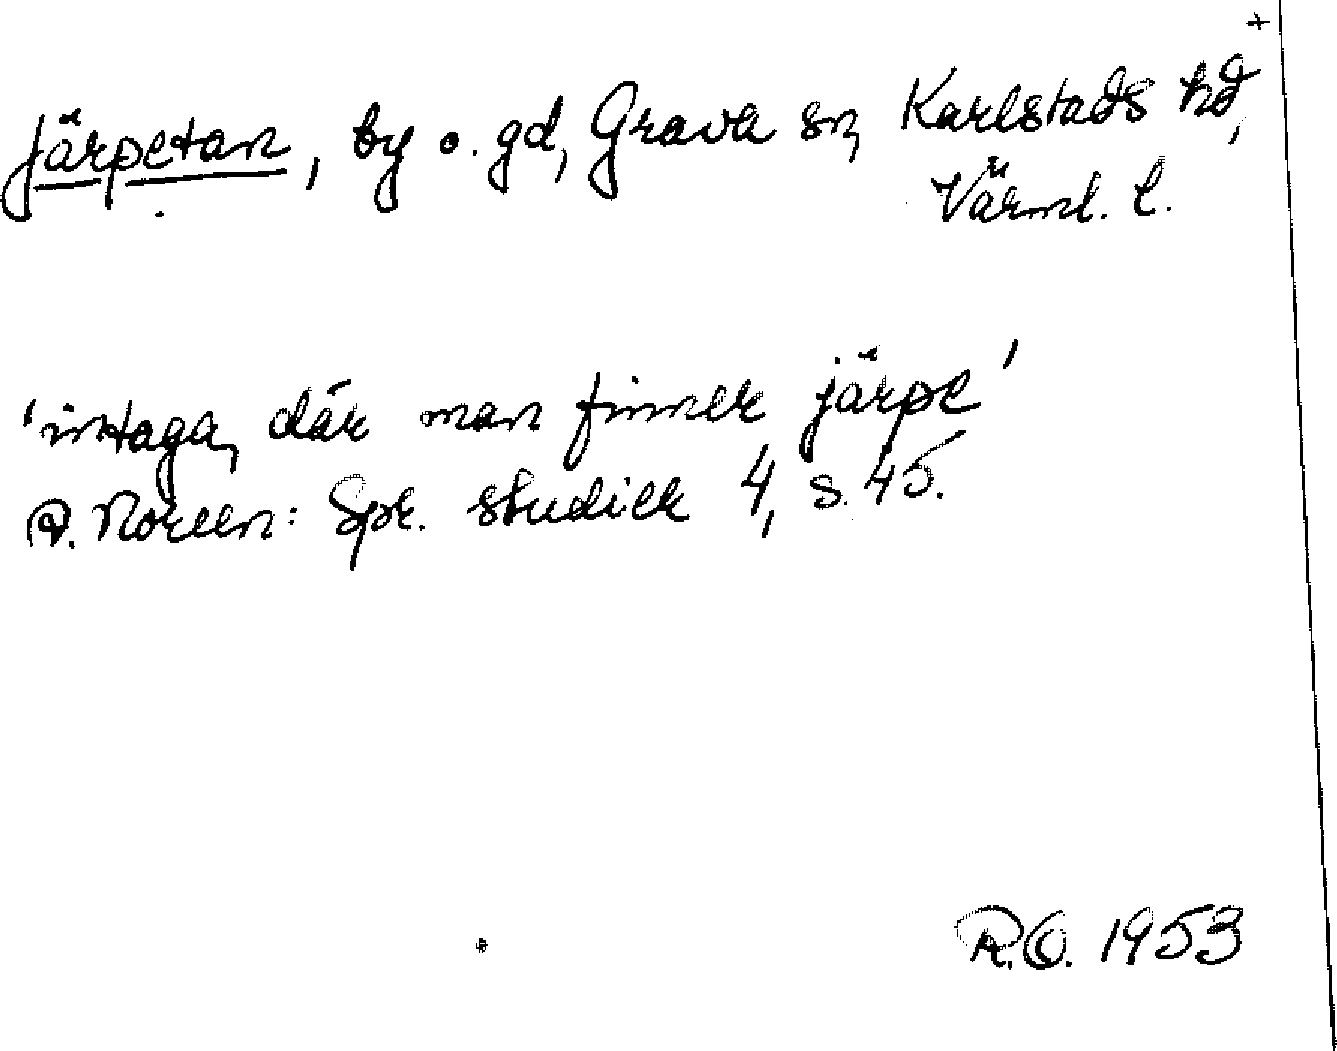 +
Järpetan, by o. gd, Grava sn, Karlstads hd,
Värml. l.
'intaga, där man finner järpe'
A. Noreen: Spr. studier 4, s. 45.
R.O. 1953